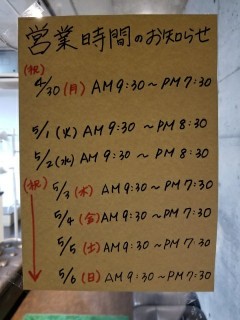 営業時間のお知らせ
(祝)
4/30(月) AM9:30~PM7:30
5/1(火) AM9:30~PM8:30
5/2(水) AM9:30~PM8:30
(祝) 5/3(木) AM9:30~PM7:30
5/4(金) AM9:30~PM7:30
5/5(土) AM9:30~PM7:30
5/6(日) AM9:30~PM7:30